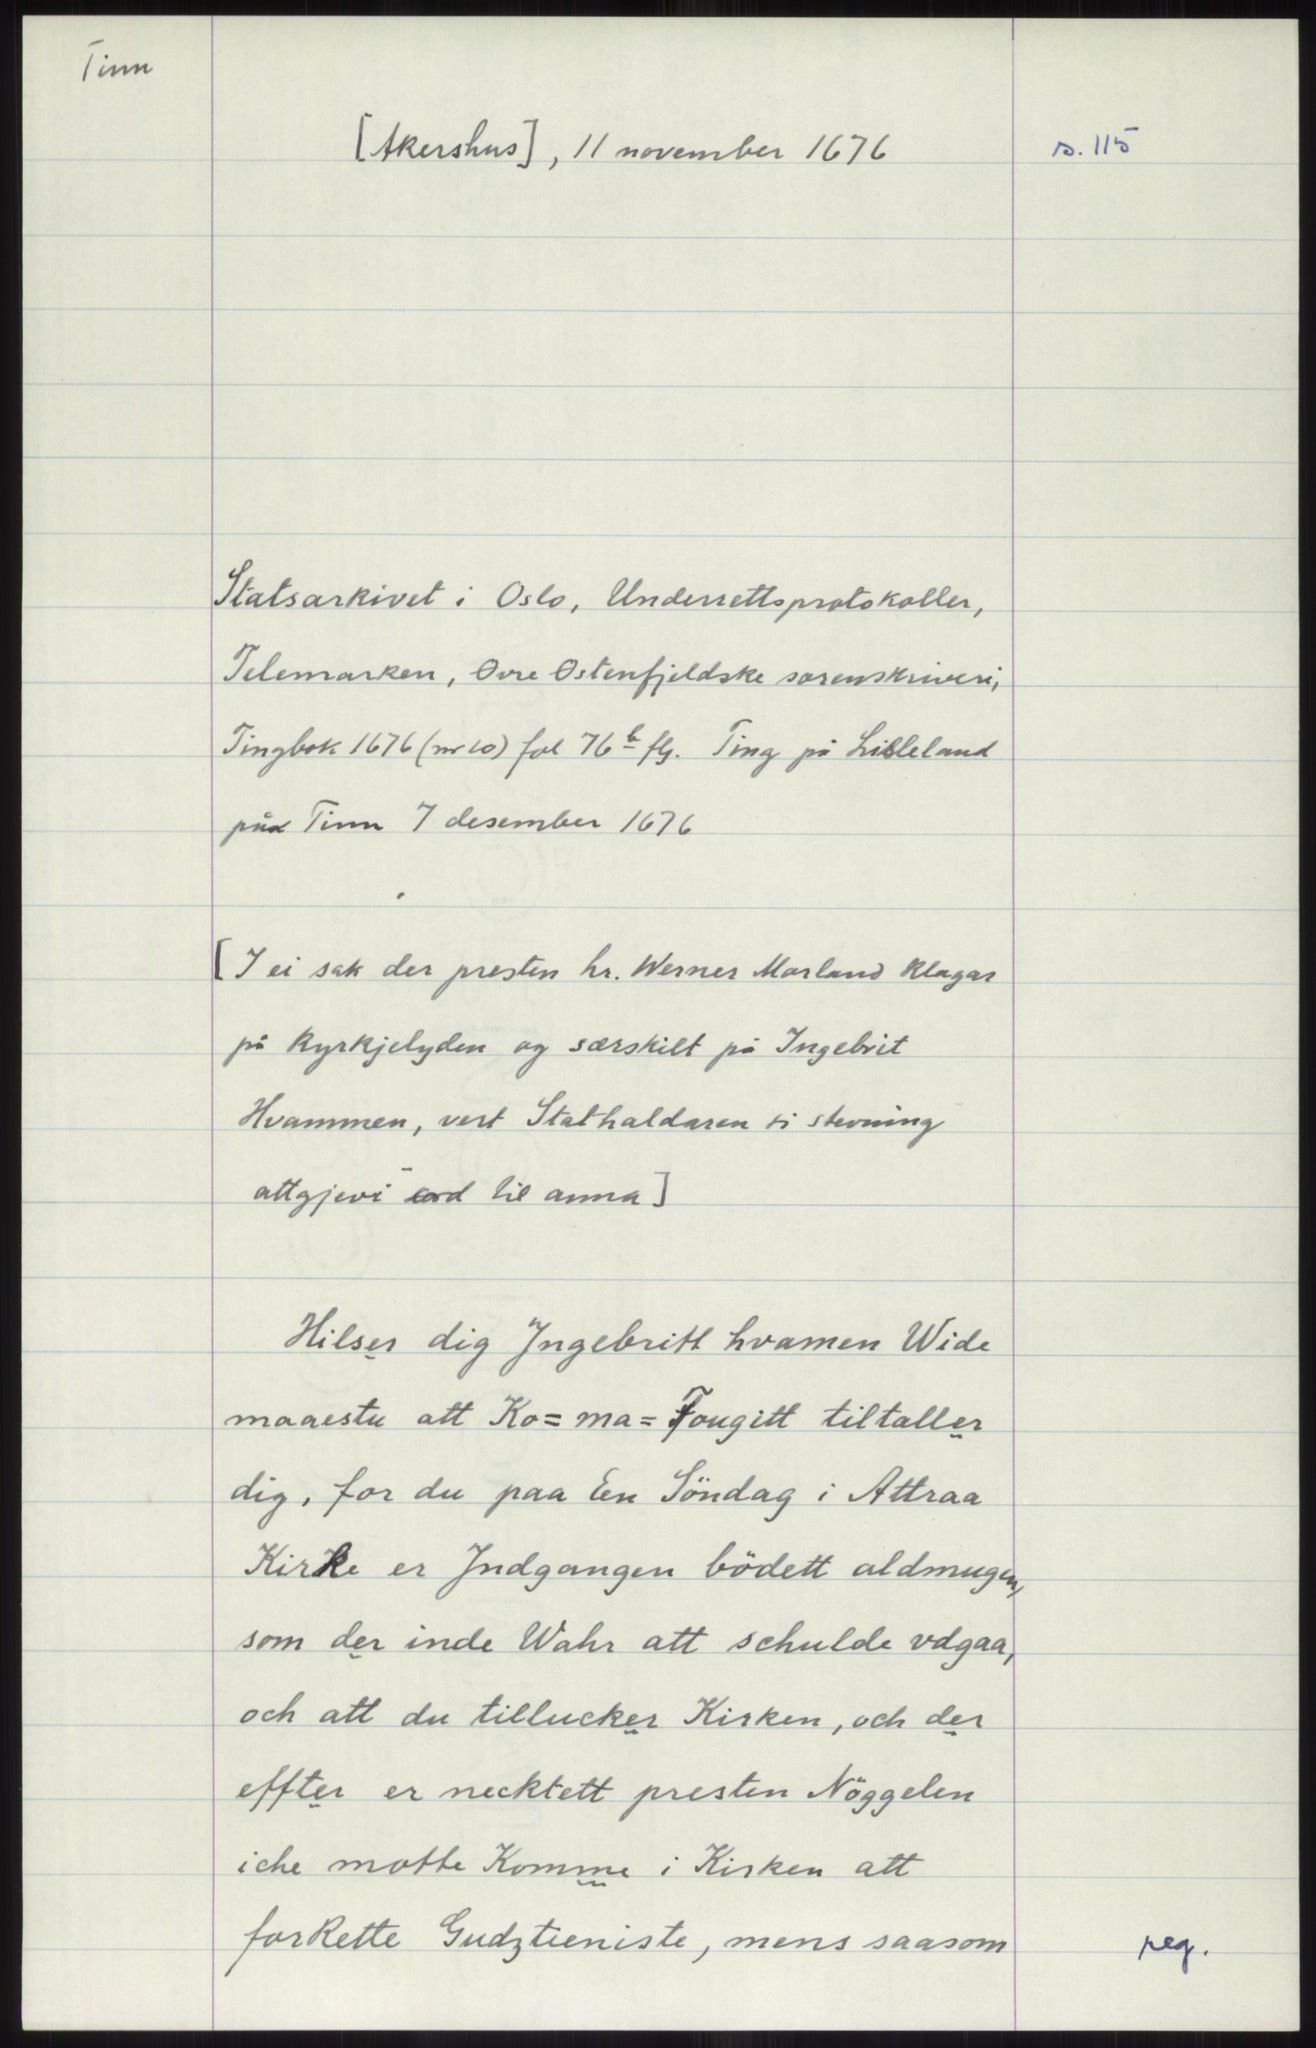 Tinn
[Akershus], 11 november 1676
s. 115
Statsarkivet i Oslo, Underrettsprotokoller,
Telemarken, Øvre Østenfjeldske sorenskriveri,
Tingbok 1676 (nr 10) fol 76 b flg. Ting på Lisleland
på Tinn 7 desember 1676
[I ei sak der presten hr. Werner Morland klagar
på kyrkjelyden og særskilt på Ingebrit
Hvammen, vert Stathaldaren si stevning
attgjevi ord til anna]
Hilser dig Jngebritt hvamen Wide
maaestu att Ko= ma= Fougitt tiltaller
dig, for du paa En Söndag i Attraa
Kirke er Jndgangen bödett aldmugen,
som der inde Wahr att schulde vdgaa,
och att du tillucker Kirken, och der
effter er necktett presten Nöggelen
iche motte Komme i Kirken att
forRette Gudztieniste, mens saasom
reg.